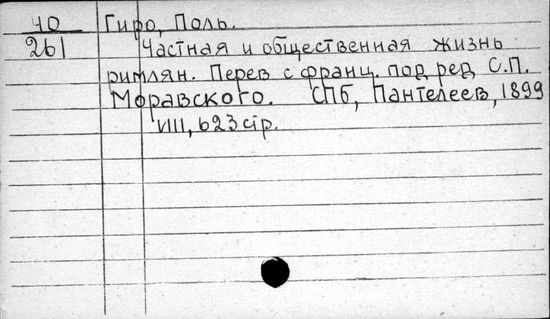 40 Гиро, Поль.
261 Частная и общественная жизнь
римлян. Перев с франц. под ред С.П.
Моравского. СПб, Пантелеев, 1899
VIII, 623 стр.